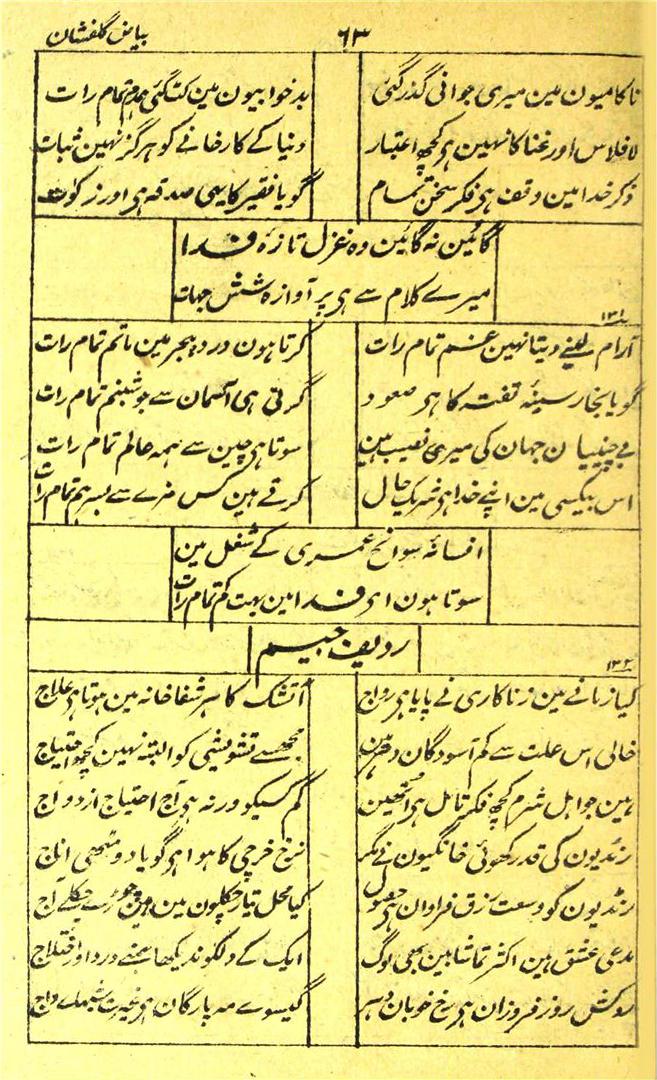 بیاض گلفشان
٦٣
ناکامیون مین میری جوانی گذر گئی
بدخوابیون مین کٹ گئی ہمدم تمام رات
افلاس اور غنا کا نہین ہی کچھ اعتبار
دنیا کے کارخانے کو ہرگز نہین ثبات
ذکر خدا مین وقف ہی فکر سخن تمام
گویا فقیر کا یہی صدقہ ہی اور زکوٰت
گائین نہ گائین وہ غزل تازۂ فدا
میرے کلام سے ہی پر آوازہ شش جہات
١٣١
آرام لینے دیتا نہین غم تمام رات
کرتا ہون درد ہجر مین ماتم تمام رات
گویا بخار سینۂ تفتہ کا ہی صعود
گرتی ہی آسمان سے جو شبنم تمام رات
بےچینیان جہان کی میری نصیب ہین
سوتا ہی چین سے ہمہ عالم تمام رات
اس بیکسی مین اپنے خدا ہی شریک حال
کرتے ہین کس مزے سے بسر ہم تمام رات
افسانۂ سوانح عمری کے شغل مین
سوتا ہون ای فدا مین بہت کم تمام رات
ردیف جیم
١٣٢
کیا زمانے مین زناکاری نے پایا ہی رواج
آتشک کا ہر شفاخانہ مین ہوتا ہی علاج
خالی اس علت سے کم آسودگان دہر ہین
مجھسے تشویشی کو البتہ نہین کچھ احتیاج
ہین جو اہل شرم کچھ فکر تامل ہی انھین
کم کسیکو ورنہ ہی آج احتیاج ازدواج
رنڈیون کی قدر کھوئی خانگیون نے مگر
نرخ خرچی کا ہوا ہی گویا دو مٹھی اناج
رنڈیون کو وسعت رزق فراوان ہی حصول
کیا محل تیار چکلون مین ہین
مدعی عشق ہین اکثر تماشا بین بھی لوگ
ایک کے دلکو ندیکھا ہمنے درد اور اختلاج
روکش روز فروزان ہی رخ خوبان دہر
گیسوے مہ پارگان ہی غیرت شبہاے داج